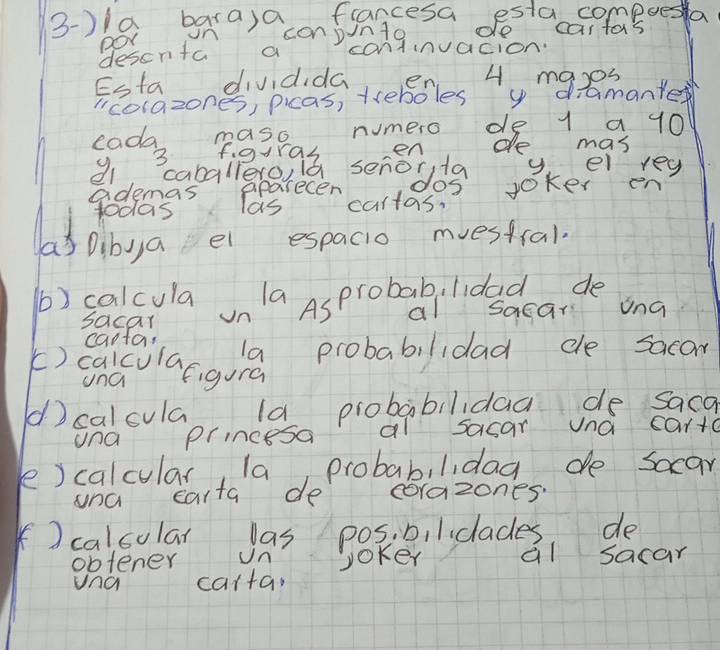 3-) la baraja francesa esta compuesta
por un conjunto de cartas
descrita a continuacion.
Esta dividida en 4 mazos
"corazones, picas, treboles y diamantes"
cada maso numero de 1 a 10
y 3 figuras en de mas
el caballero, la señorita y el rey
ademas aparecen dos joker en
todas las cartas.
a) Dibuja el espacio muestral.
b) calcula la probabilidad de
sacar un As al sacar una
carta.
c) calcula la probabilidad de sacar
una figura
d) calcula la probabilidad de saca
una princesa al sacar una carta
e) calcular la probabilidad de sacar
una carta de corazones.
f) calcular las posibilidades de
obtener un joker al sacar
una carta.